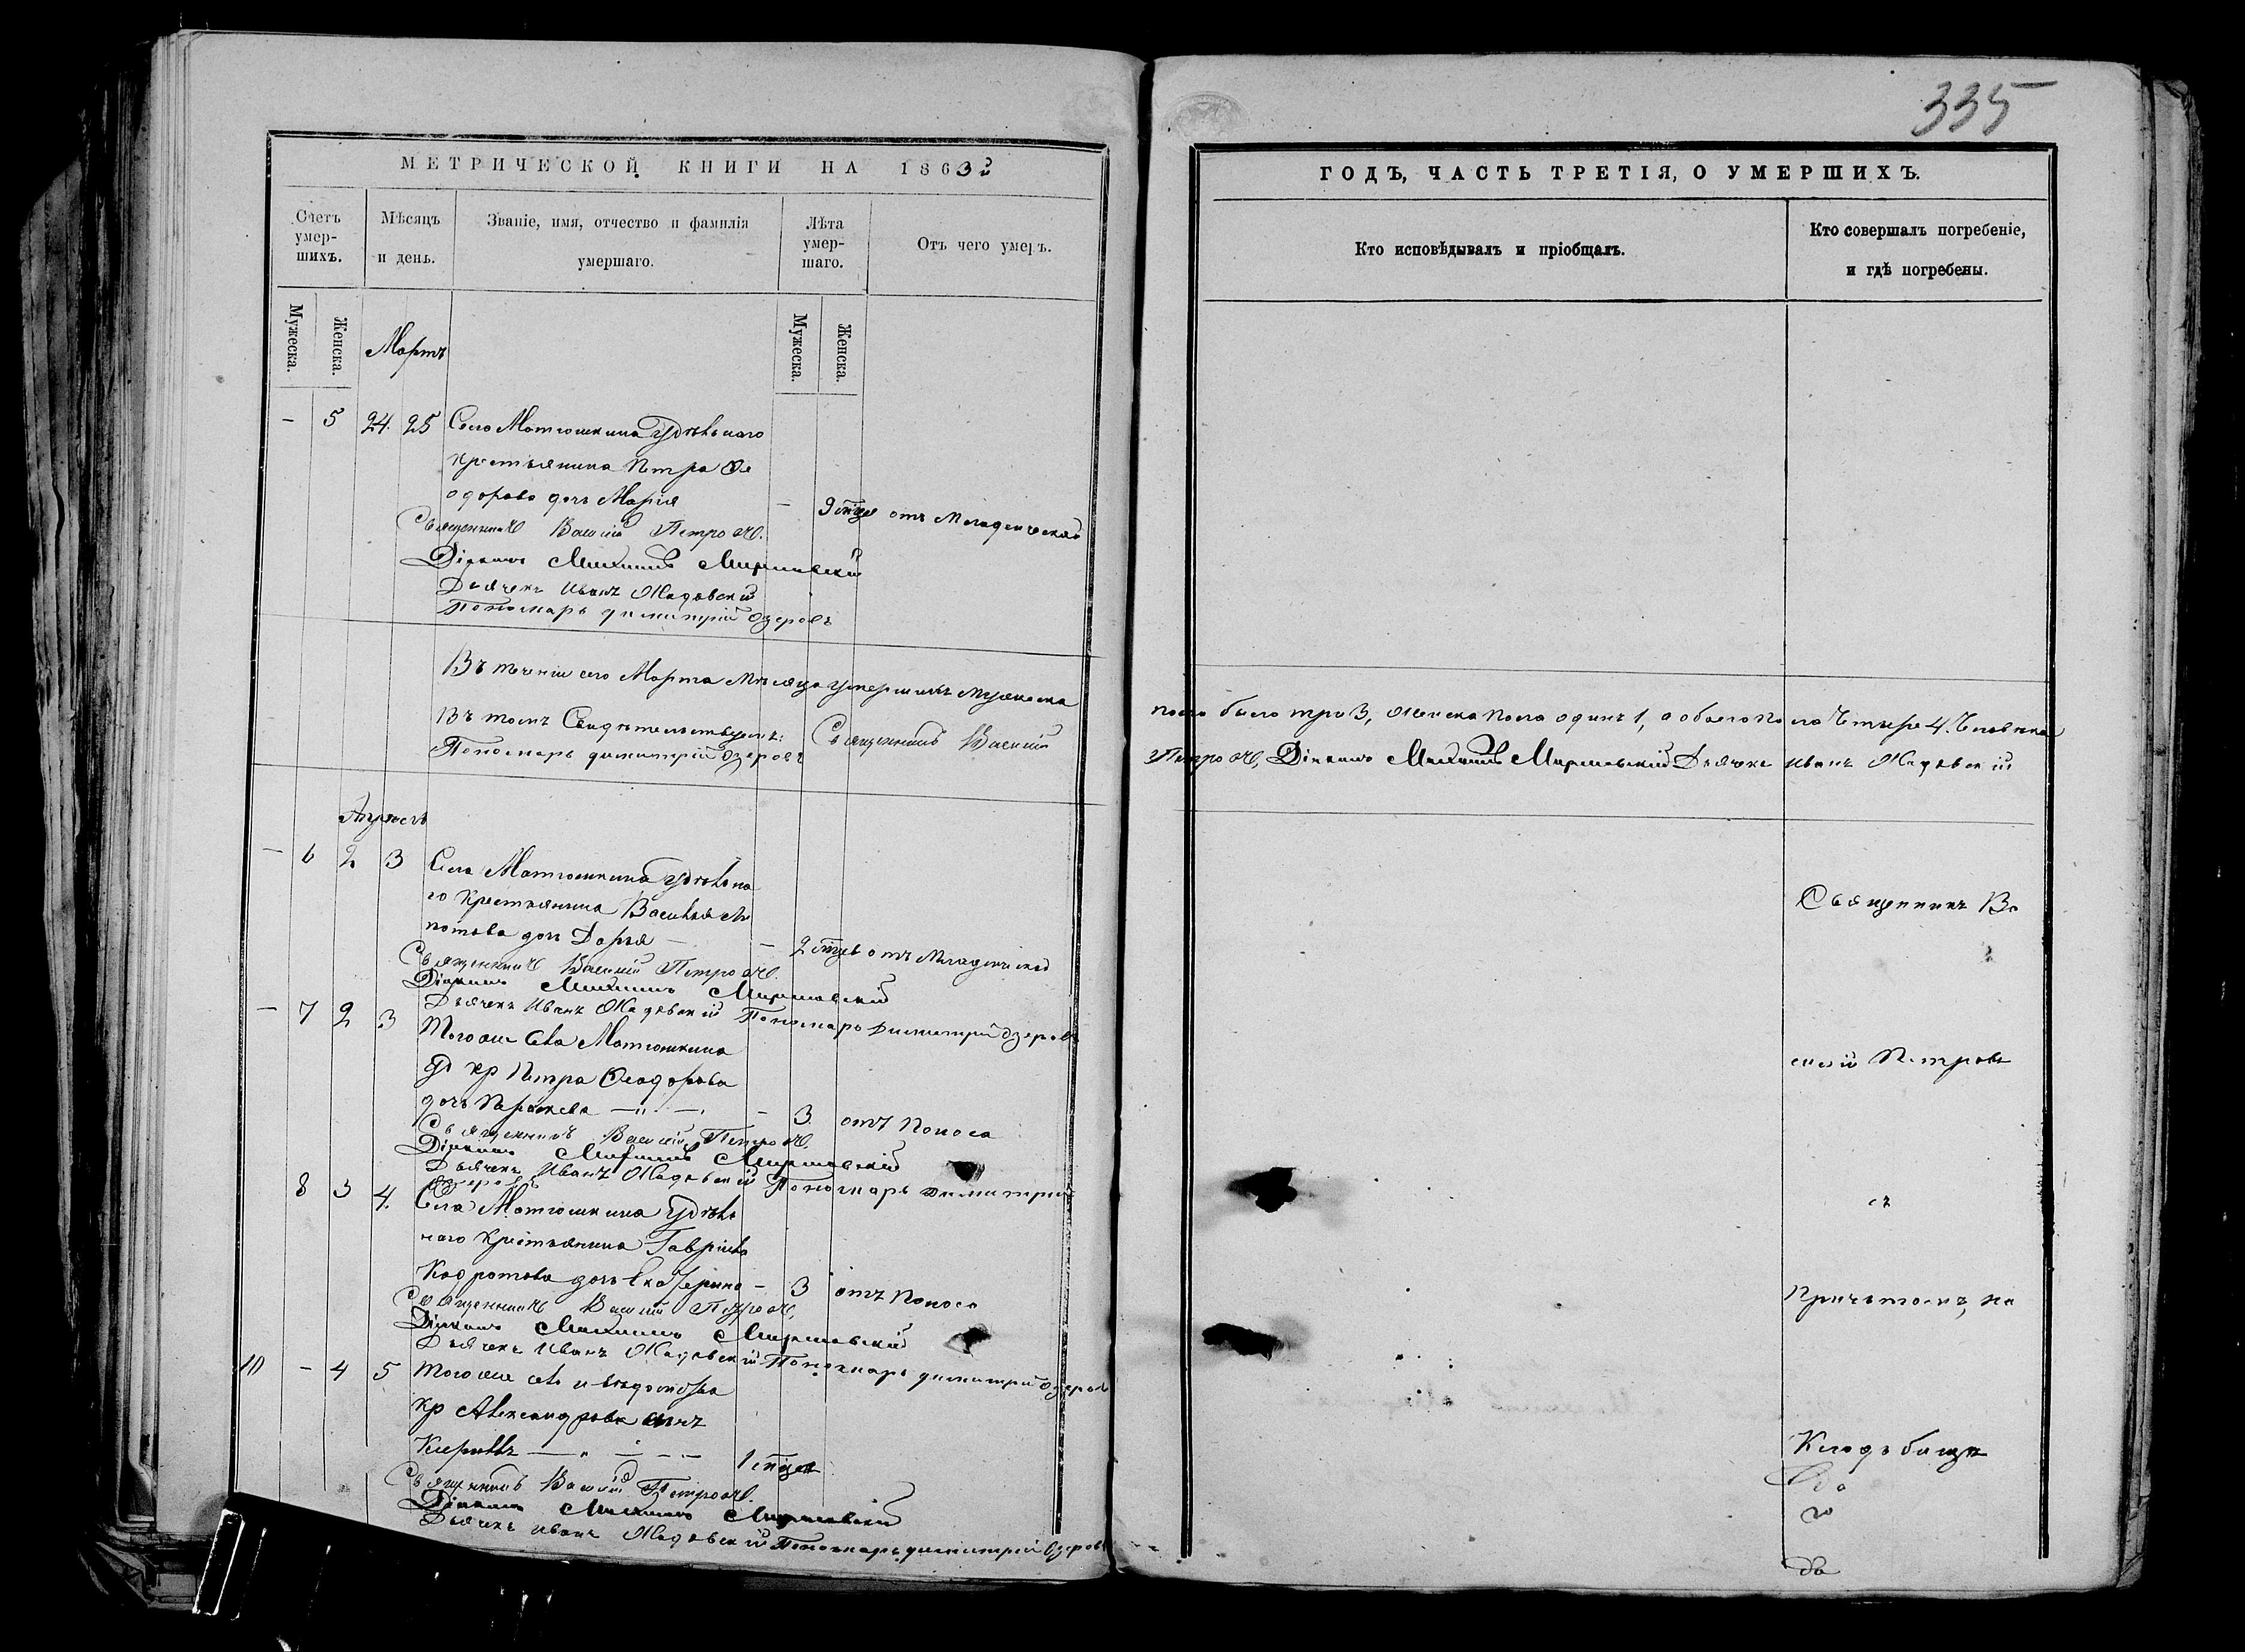 335
МЕТРИЧЕСКОЙ КНИГИ НА 1863й
Счетъ умер-шихъ.
Мѣсяцъ и день.
Званіе, имя, отчество и фамилія умершаго.
Лѣта умер-шаго.
Отъ чего умеръ.
Мужеска.
Женска.
Мартъ
Мужеска.
Женска.
- 5 24. 25 Села Матюшкина Удѣльнаго
крестьянина Петра Ѳе
одорова дочь Марія - 9 отъ Младенческой
Священникъ Василій Петровъ.
Діаконъ Михаилъ
Дьячекъ Иванъ Жадовскій
Пономарь Димитрій Озеровъ
Въ теченіи сего Марта мѣсяца умершихъ мужеска
Въ томъ Свидѣтельствуемъ: Священникъ Василій
Пономарь Димитрій Озеровъ
Апрѣль
- 6 2 3 Села Матюшкина Удѣльна
го крестьянина Василья
дочь Дарья - - 2 отъ Младенческой
Священникъ Василій Петровъ.
Діаконъ Михаилъ
Дьячекъ Иванъ Жадовскій Пономарь Димитрій Озеровъ
- 7 2 3 Того же села Матюшкина
кр Петра Ѳеодорова
дочь Параскева - 3. отъ Поноса
Священникъ Василій Петровъ.
Діаконъ Михаилъ
Дьячекъ Иванъ Жадовскій Пономарь Димитрій
Озеровъ
8 3 4. Села Матюшкина Удѣль
наго крестьянина Гавріила
дочь Екатерина - 3 отъ Поноса
Священникъ Василій Петровъ,
Діаконъ Михаилъ
Дьячекъ Иванъ Жадовскій Пономарь Димитрій Озеровъ
10 - 4 5 Того же села и вѣдомства
кр Александрова сынъ
1
Священникъ Василій Петровъ.
Діаконъ Михаилъ
Дьячекъ Иванъ Жадовскій Пономарь Димитрій Озеровъ
ГОДЪ, ЧАСТЬ ТРЕТІЯ, О УМЕРШИХЪ.
Кто исповѣдывалъ и пріобщалъ.
Кто совершалъ погребеніе,
и гдѣ погребены.
пола было три 3, женска пола одинъ 1, а обоего пола Четыре 4. Человѣка
Петровъ, Діаконъ Михаилъ Дьячекъ Иванъ Жадовскій
Священникъ Ва
силій Петровъ
съ
Причтомъ, на
Кладбищѣ